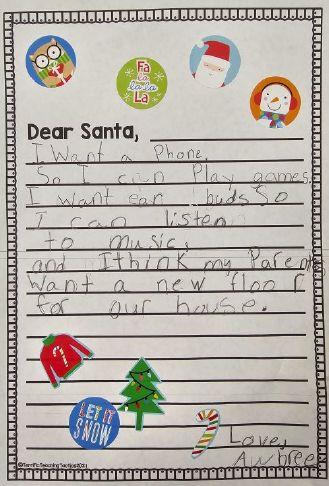 Fa
la
la la la
La
Dear Santa,
I Want a Phone.
So I can Play games.
I want ear buds So
I can listen
to music,
and I think my Parents
Want a new floor
for our house.
LET IT
SNOW
Love,
Aubree